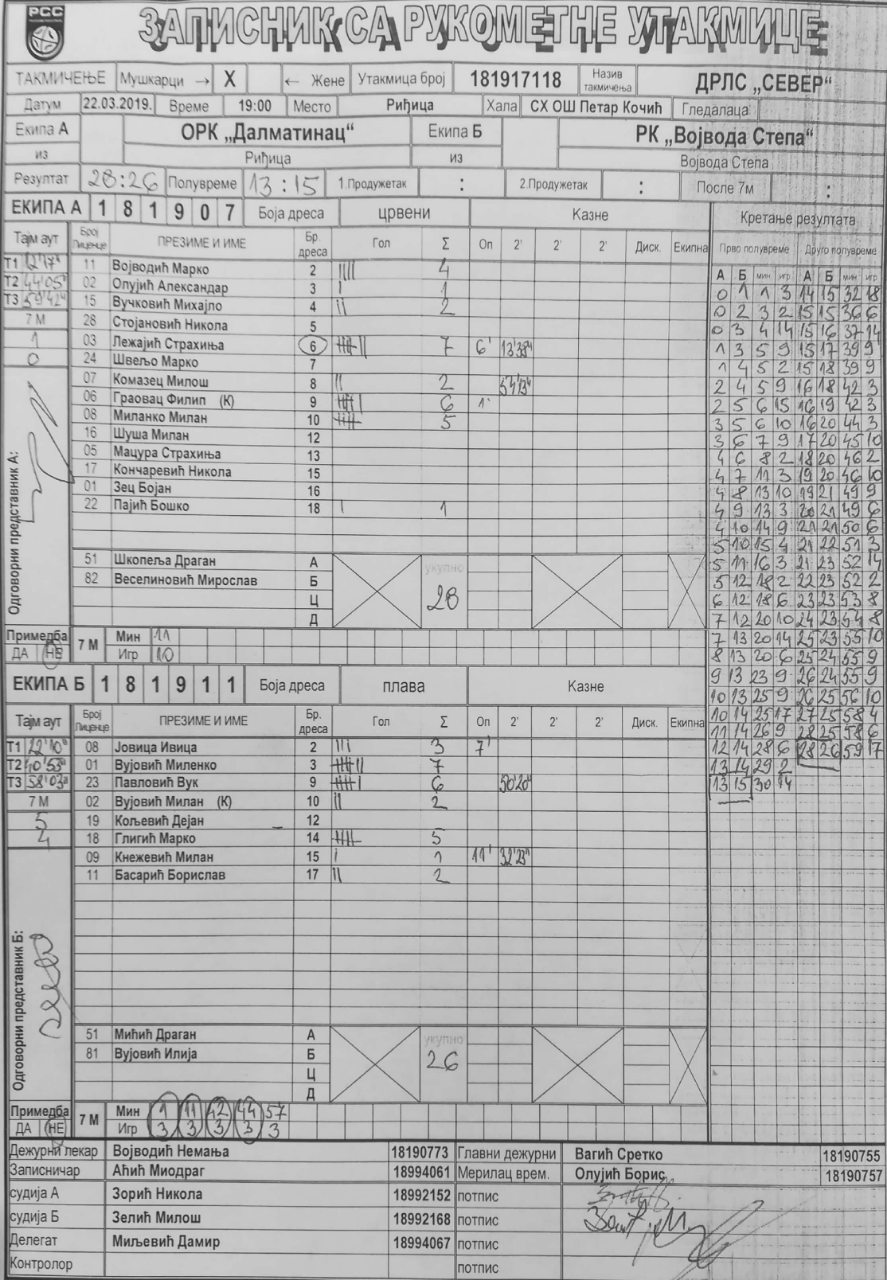 РСС
ЗАПИСНИК СА РУКОМЕТНЕ УТАКМИЦЕ
ТАКМИЧЕЊЕ Мушкарци → X ← Жене Утакмица број 181917118 Назив такмичења ДРЛС „СЕВЕР“
Датум 22.03.2019. Време 19:00 Место Риђица Хала СХ ОШ Петар Кочић Гледалаца
Екипа А ОРК „Далматинац“ Екипа Б РК „Војвода Степа“
из Риђица из Војвода Степа
Резултат 28:26 Полувреме 13:15 1.Продужетак : 2.Продужетак : После 7м :
ЕКИПА А 1 8 1 9 0 7 Боја дреса црвени Казне Кретање резултата
Тајм аут Број Лиценце ПРЕЗИМЕ И ИМЕ Бр. дреса Гол Σ Оп 2' 2' 2' Диск. Екипна Прво полувреме Друго полувреме
А Б мин игр А Б мин игр
T1 12'17" 11 Војводић Марко 2 |||| 4
T2 44'05" 02 Олујић Александар 3 | 1
T3 59'42" 15 Вучковић Михајло 4 || 2
7 М 28 Стојановић Никола 5
1 03 Лежајић Страхиња 6 |||| || 7 6' 13'38"
0 24 Швељо Марко 7
07 Комазец Милош 8 || 2 54'13"
06 Граовац Филип (К) 9 |||| | 6 1'
08 Миланко Милан 10 |||| 5
16 Шуша Милан 12
05 Мацура Страхиња 13
17 Кончаревић Никола 15
01 Зец Бојан 16
22 Пајић Бошко 18 | 1
Одговорни представник А:
51 Шкопеља Драган А укупно
82 Веселиновић Мирослав Б 28
Ц
Д
Примедба ДА НЕ 7 М Мин 11
Игр 10
0 1 1 3 14 15 32 18
0 2 3 2 15 15 36 6
0 3 4 14 15 16 37 14
1 3 5 9 15 17 39 9
1 4 5 2 15 18 39 9
2 4 5 9 16 18 42 3
2 5 6 15 16 19 42 3
3 5 6 10 16 20 44 3
3 6 7 9 17 20 45 10
4 6 8 2 18 20 46 2
4 7 11 3 19 20 46 10
4 8 13 10 19 21 49 9
4 9 13 3 20 21 49 6
4 10 14 9 21 21 50 6
5 10 15 4 21 22 51 3
5 11 16 3 21 23 52 14
5 12 18 2 22 23 52 2
6 12 18 6 23 23 53 8
7 12 20 10 24 23 54 8
7 13 20 14 25 23 55 10
8 13 20 6 25 24 55 9
9 13 23 9 26 24 55 9
10 13 25 9 26 25 56 10
10 14 25 17 27 25 58 4
11 14 26 9 28 25 58 6
12 14 28 6 28 26 59 17
13 14 29 2
13 15 30 14
ЕКИПА Б 1 8 1 9 1 1 Боја дреса плава Казне
Тајм аут Број Лиценце ПРЕЗИМЕ И ИМЕ Бр. дреса Гол Σ Оп 2' 2' 2' Диск. Екипна
T1 22'10" 08 Јовица Ивица 2 ||| 3 7'
T2 40'53" 01 Вујовић Миленко 3 |||| || 7
T3 58'03" 23 Павловић Вук 9 |||| | 6 50'20"
7 М 02 Вујовић Милан (К) 10 || 2
5 19 Кољевић Дејан 12
4 18 Глигић Марко 14 |||| 5
09 Кнежевић Милан 15 | 1 11' 32'23"
11 Басарић Борислав 17 || 2
Одговорни представник Б:
51 Мићић Драган А укупно
81 Вујовић Илија Б 26
Ц
Д
Примедба ДА НЕ 7 М Мин 1 11 42 44 57
Игр 3 3 3 3 3
Дежурни лекар Војводић Немања 18190773 Главни дежурни Вагић Сретко 18190755
Записничар Аћић Миодраг 18994061 Мерилац врем. Олујић Борис 18190757
судија А Зорић Никола 18992152 потпис
судија Б Зелић Милош 18992168 потпис
Делегат Миљевић Дамир 18994067 потпис
Контролор потпис